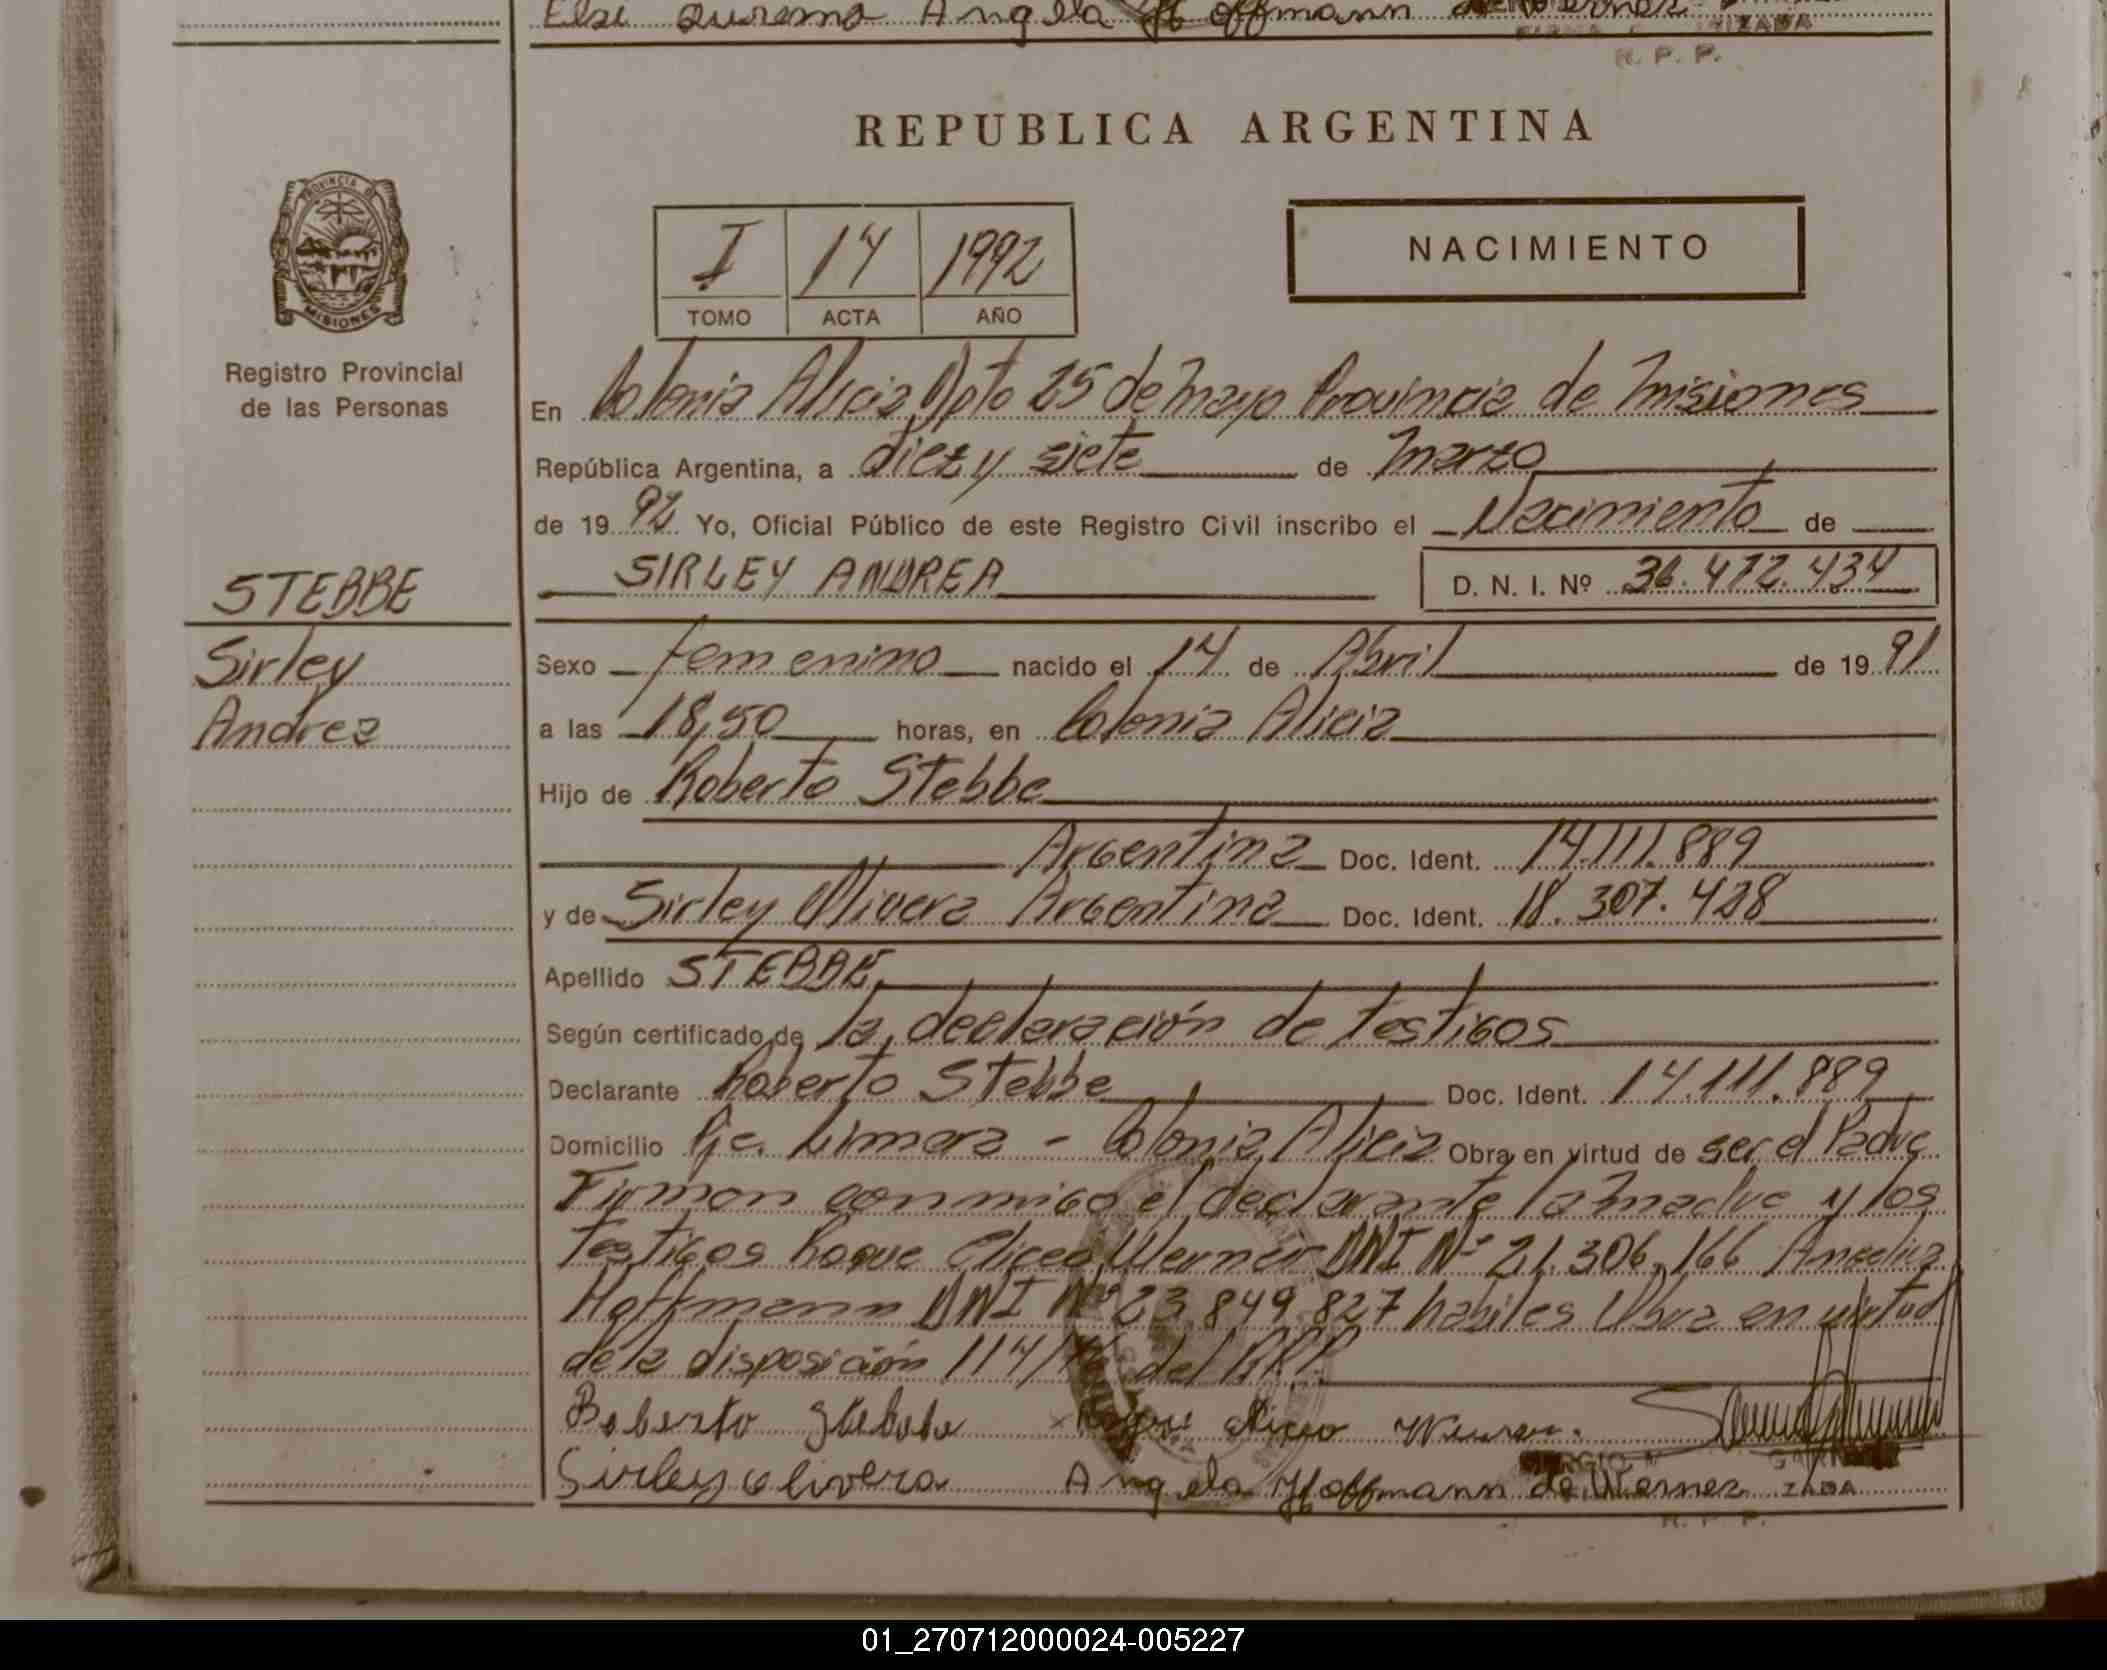 Else Angela Hoffmann de Werner
IZADA
R. P. P.
REPUBLICA ARGENTINA
PROVINCIA DE
MISIONES
Registro Provincial
de las Personas
I 14 1992
TOMO ACTA AÑO
NACIMIENTO
En Colonia Alicia Dpto 25 de Mayo Provincia de Misiones
República Argentina, a diez y siete de Marzo
de 1992 Yo, Oficial Público de este Registro Civil inscribo el Nacimiento de
SIRLEY ANDREA D. N. I. Nº 36.472.434
STEBBE
Sirley
Andrea
Sexo femenino nacido el 14 de Abril de 1991
a las 18,50 horas, en Colonia Alicia
Hijo de Roberto Stebbe
Argentina Doc. Ident. 14.111.889
y de Sirley Olivera Argentina Doc. Ident. 18.307.428
Apellido STEBBE
Según certificado de la declaración de testigos
Declarante Roberto Stebbe Doc. Ident. 14.111.889
Domicilio Pje. Limera - Colonia Alicia Obra en virtud de ser el Padre
Firman conmigo el declarante la madre y los
testigos Roque Werner DNI Nº 21.306.166
Hoffmann DNI Nº 23.849.827 habiles Obra en virtud
de la disposición 114/ del R.P.P.
Roberto Stebbe
Sirley Olivera Angela Hoffmann de Werner
R. P. P.
01_270712000024-005227